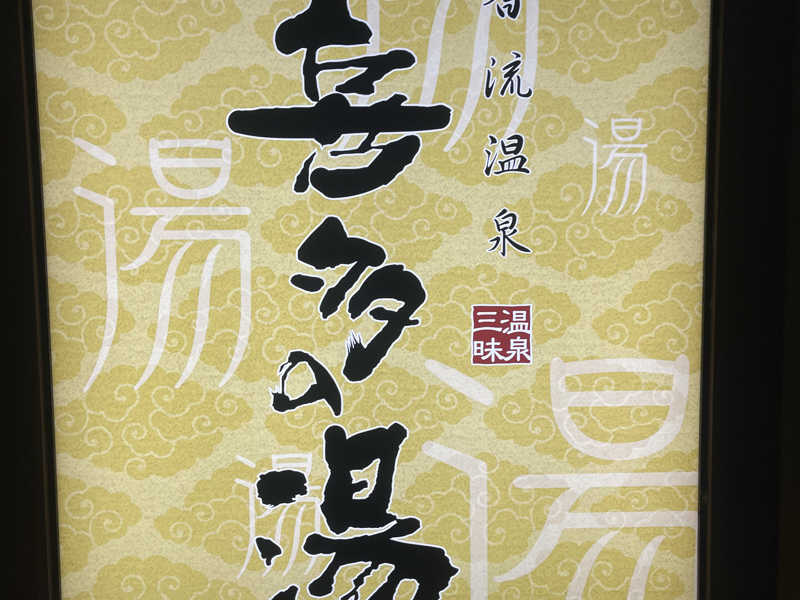 香流温泉
喜多の湯
温泉
三昧
湯
湯
湯
湯